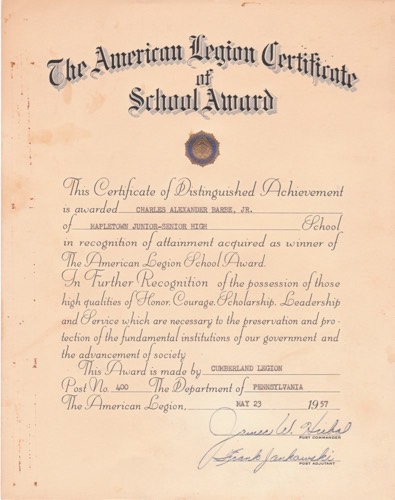 The American Legion Certificate
of
School Award
This Certificate of Distinguished Achievement
is awarded CHARLES ALEXANDER BARBE, JR.
of MAPLETOWN JUNIOR-SENIOR HIGH School
in recognition of attainment acquired as winner of
The American Legion School Award.
In Further Recognition of the possession of those
high qualities of Honor, Courage, Scholarship, Leadership
and Service which are necessary to the preservation and pro-
tection of the fundamental institutions of our government and
the advancement of society
This Award is made by CUMBERLAND LEGION
Post No. 400 The Department of PENNSYLVANIA
The American Legion, MAY 23 1957
James W.
POST COMMANDER
Frank Jankowski
POST ADJUTANT